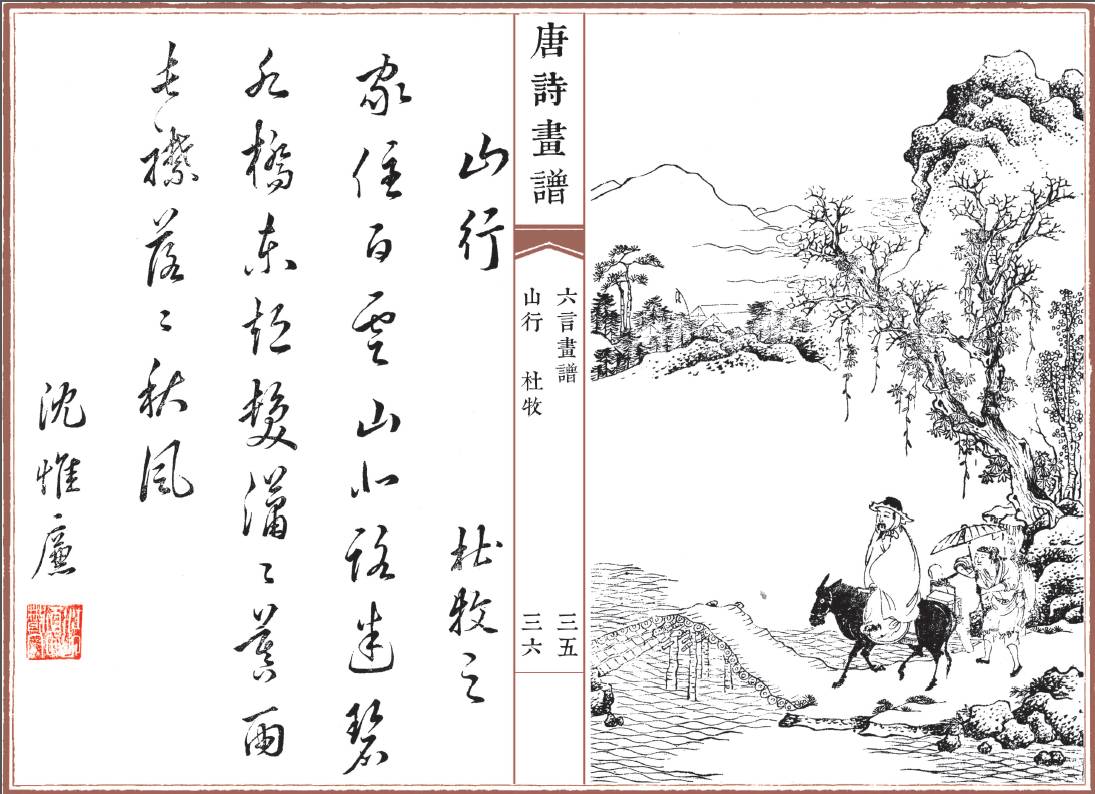 唐詩畫譜
六言畫譜 三五
山行 杜牧 三六
山行 杜牧之
家住白雲山北路迷碧
水橋東短髮瀟〻暮雨
長襟落〻秋風
沈惟廉